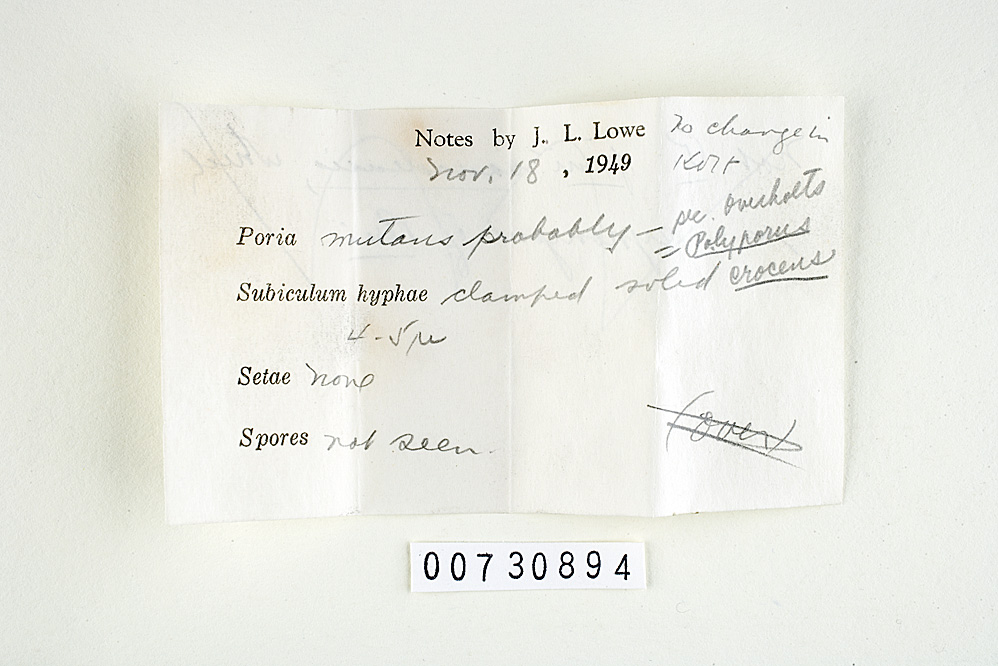 Notes by J. L. Lowe
Nov. 18, 1949
To change in
Poria mutans probably — sec. Overholts
= Polyporus
Subiculum hyphae clamped solid croceus
4-5µ
Setae none
Spores not seen.
(over)
00730894